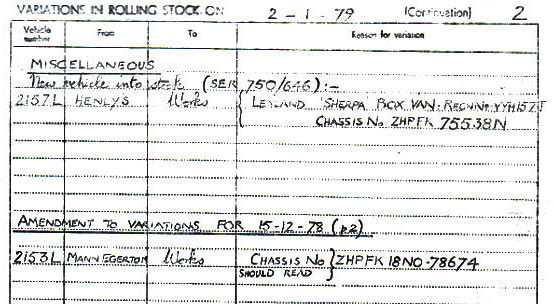 VARIATIONS IN ROLLING STOCK ON 2 - 1 - 79 (Continuation) 2
Vehicle number From To Reason for variation
MISCELLANEOUS
New vehicle into stock (SER 750/646) :-
2157L HENLYS Works { LEYLAND 'SHERPA' BOX VAN. REGN No YYH157T
CHASSIS No ZHPFK 75538N
AMENDMENT TO VARIATIONS FOR 15-12-78 (p2)
2153L MANN EGERTON Works CHASSIS No } ZHPFK 18NO-78674
SHOULD READ